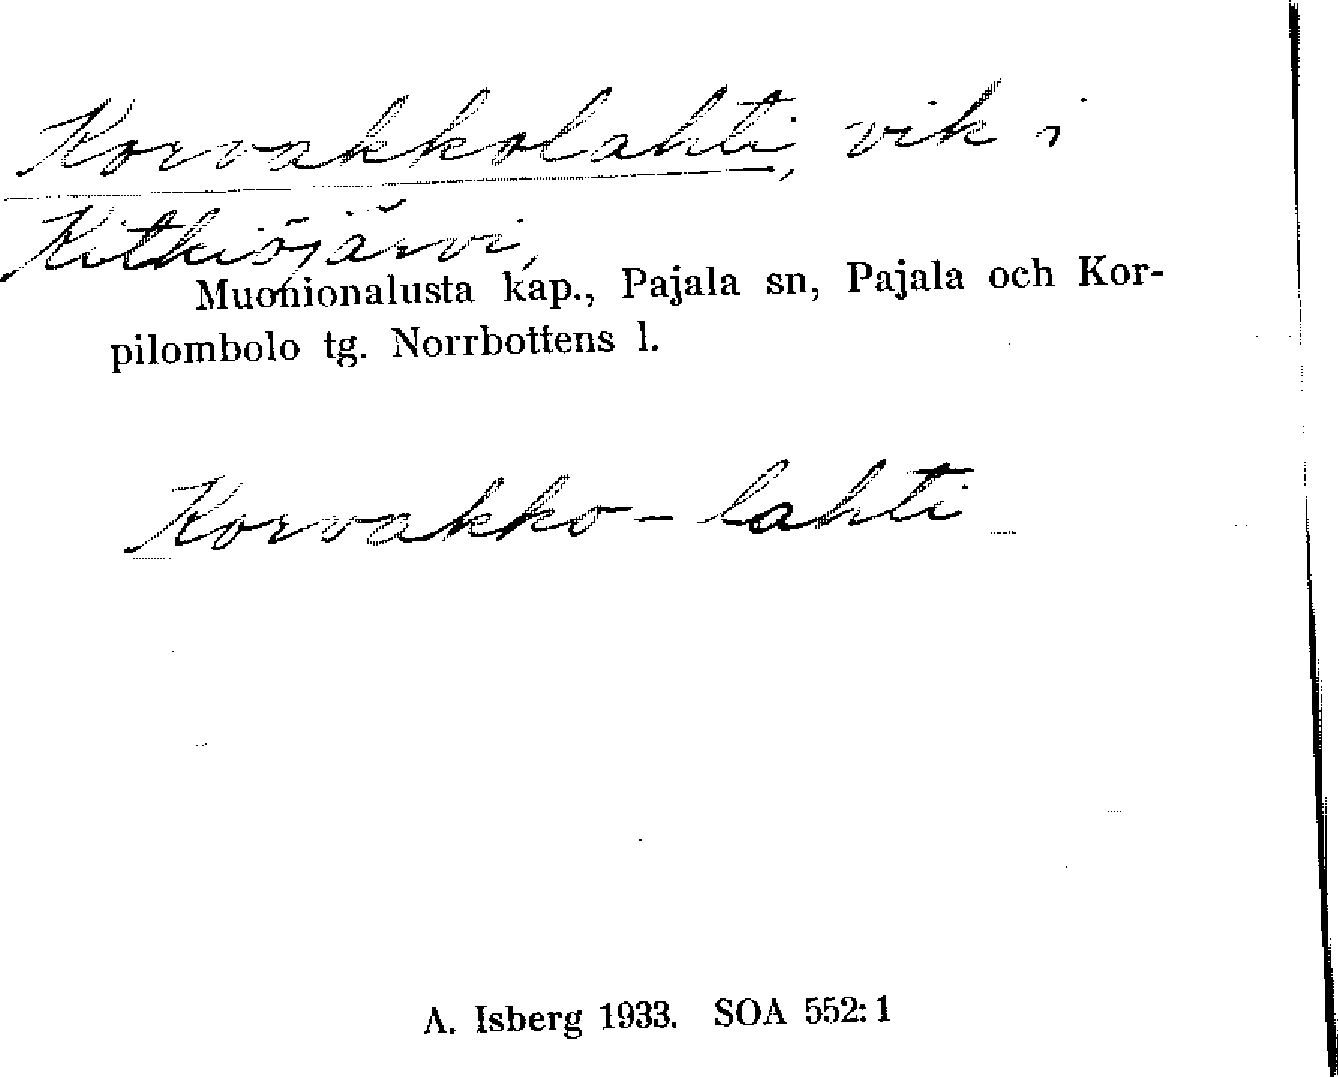 Korvakkolahti, vik i
Kitkiöjärvi,
Muonionalusta kap., Pajala sn, Pajala och Kor-
pilombolo tg. Norrbottens l.
Korvakko-lahti
A. Isberg 1933. SOA 552:1